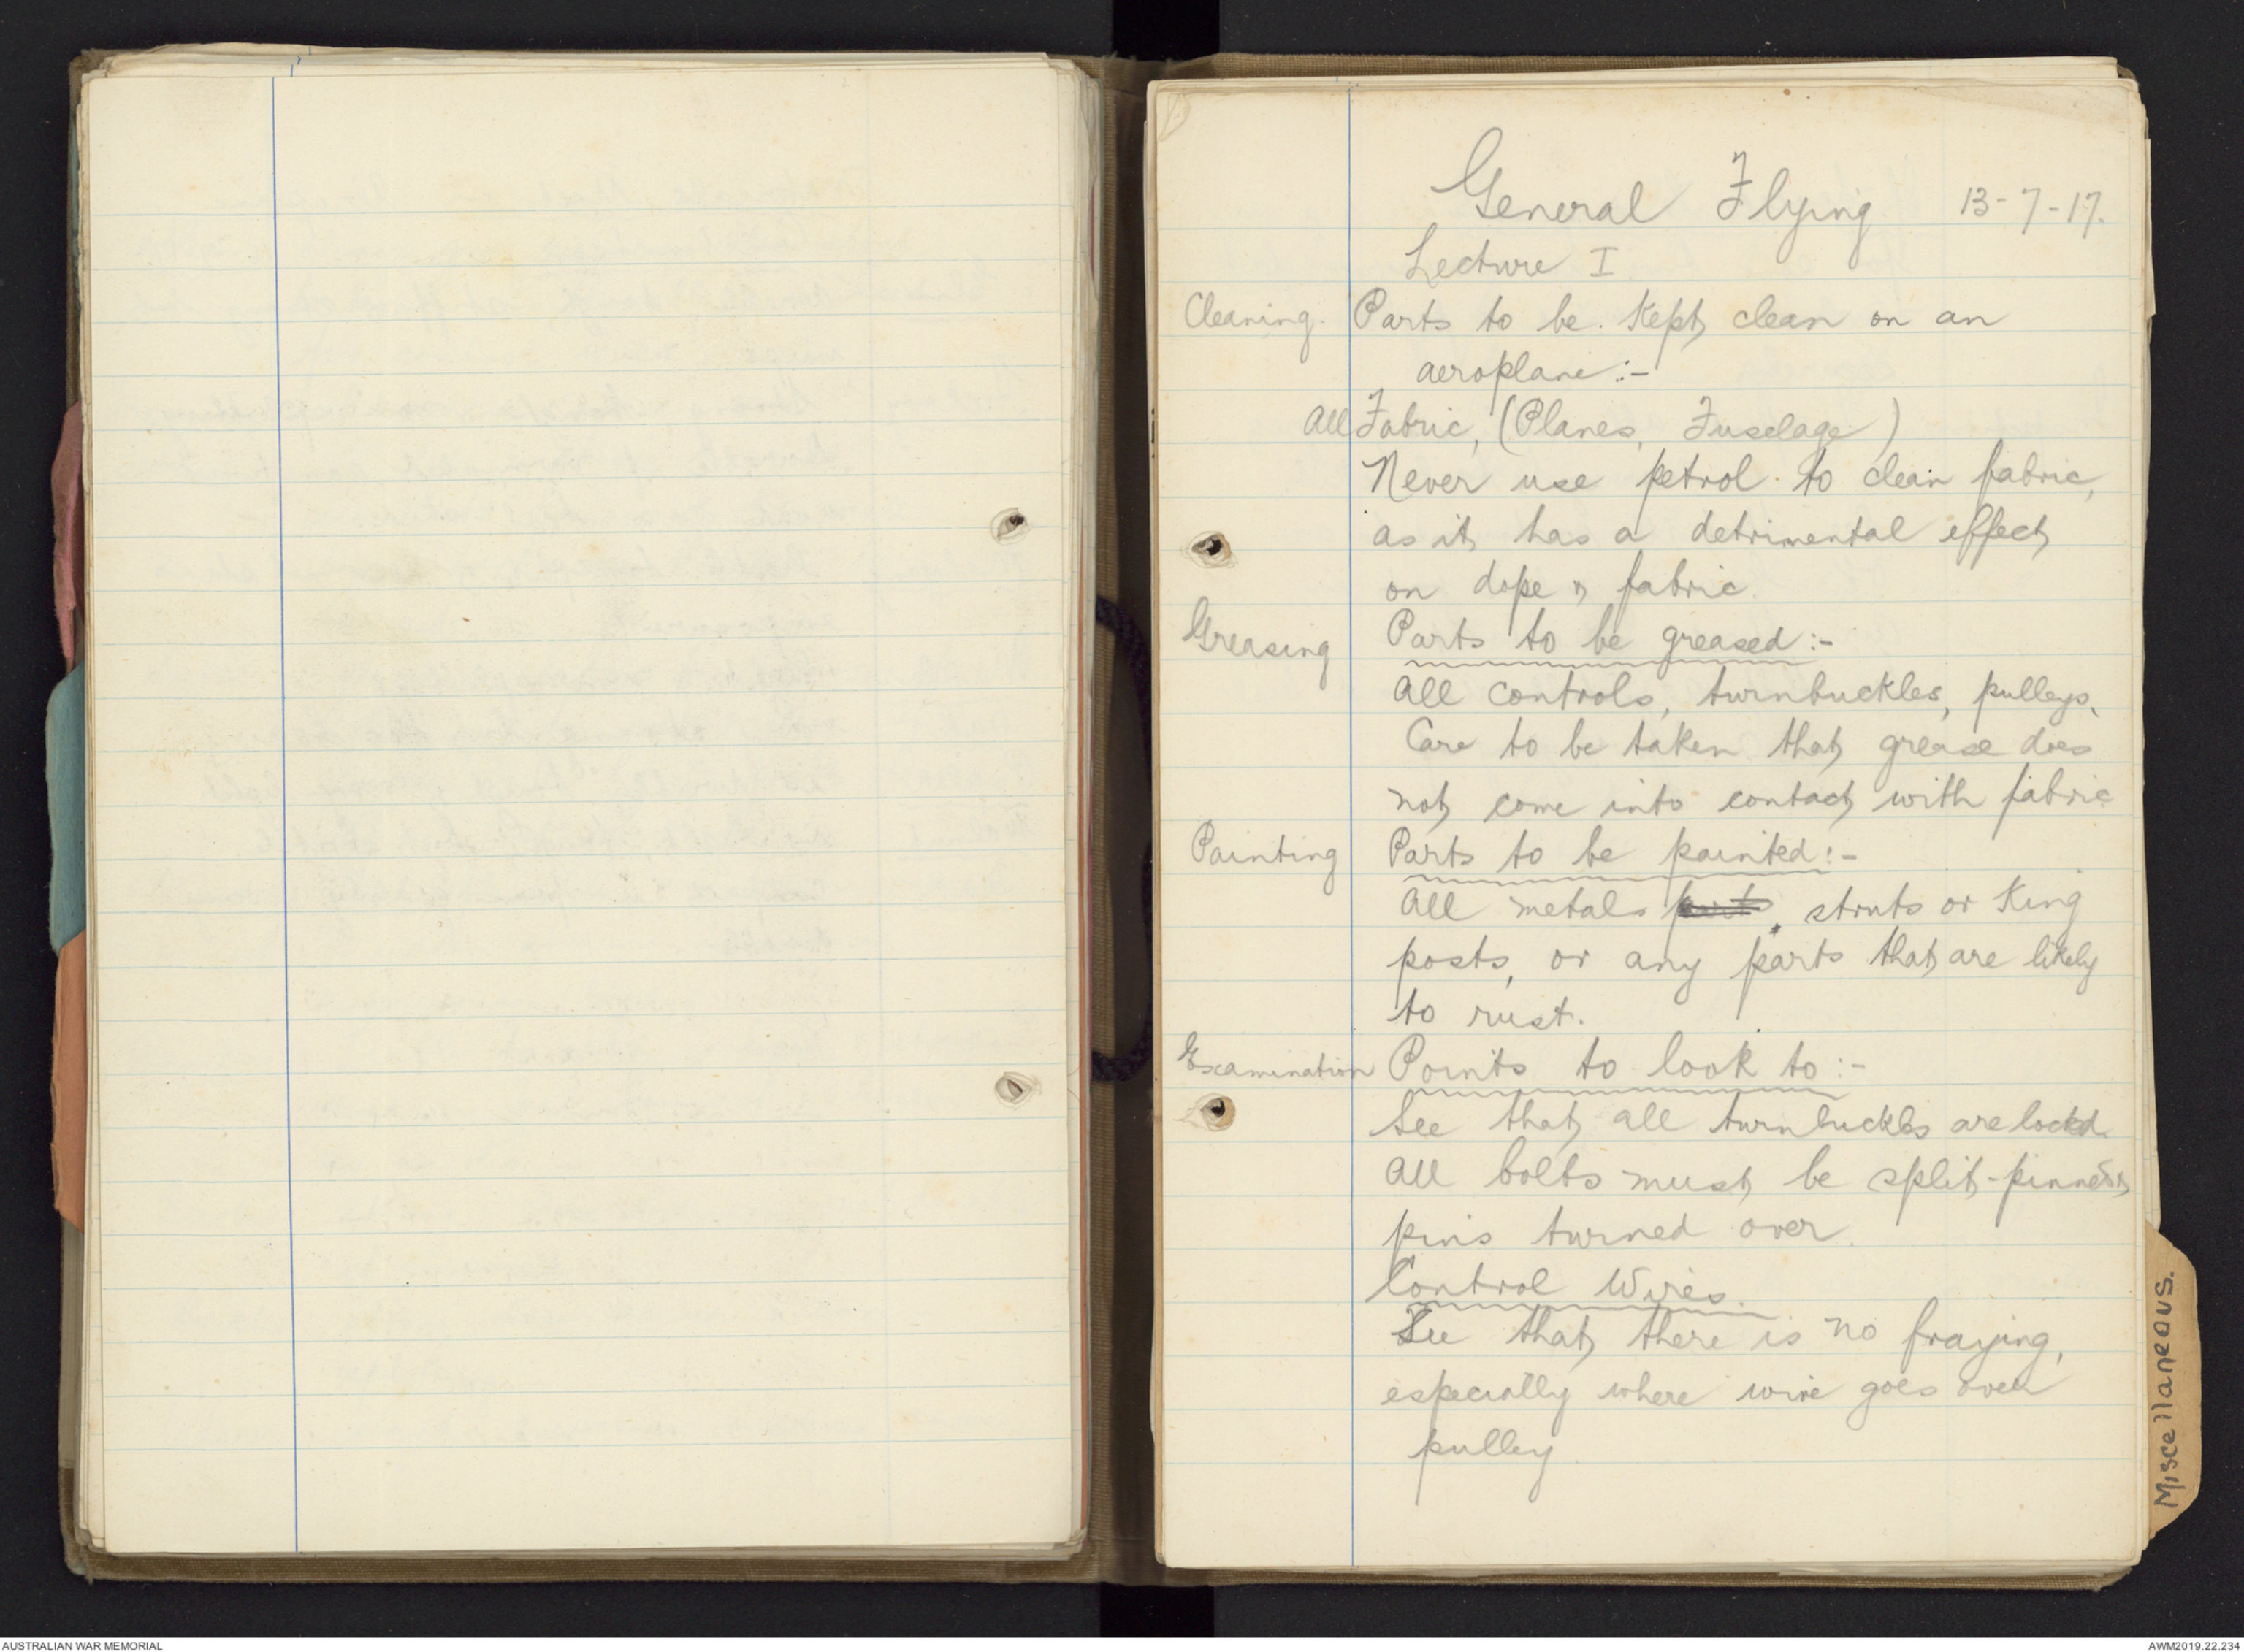 General Flying 13-7-17.
Lecture I.
Cleaning. Parts to be. Kept clean on an
aeroplane:-
All Fabric, (Planes, Fuselage)
Never use petrol to clean fabric,
as it has a detrimental effect
on dope & fabric.
Greasing Parts to be greased:-
All controls, turnbuckles, pulleys,
Care to be taken that grease does
not come into contact with fabric
Painting Parts to be painted:-
All metals parts, struts or King
posts, or any parts that are likely
to rust.
Examination Points to look to:-
See that all turnbuckles are locked.
All bolts must be split-pinned &
pins turned over.
Control Wires.
See that there is no fraying,
especially where wire goes over
pulley.
Miscellaneous.
AUSTRALIAN WAR MEMORIAL
AWM2019.22.234